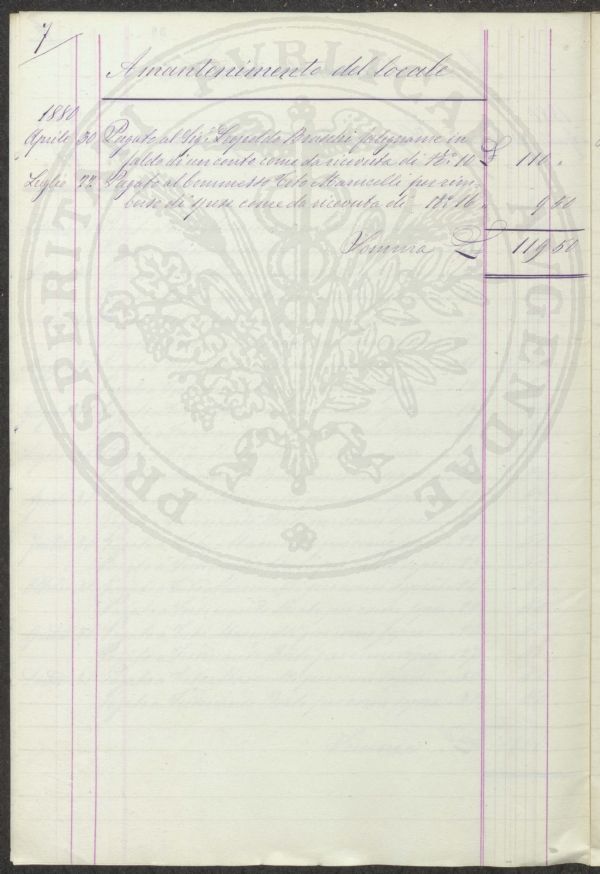 7
A mantenimento del locale
1880
Aprile 30 Pagato al Sig.r Leopoldo Braschi falegname in
saldo di un conto come da ricevuta di N.° 10 £ 110 "
Luglio 22 Pagato al Commesso Tito Marucelli per rim-
borso di spese come da ricevuta di N.° 16 " 9 50
Somma £ 119 50
PROSPERITATI PUBLICAE AUGENDAE